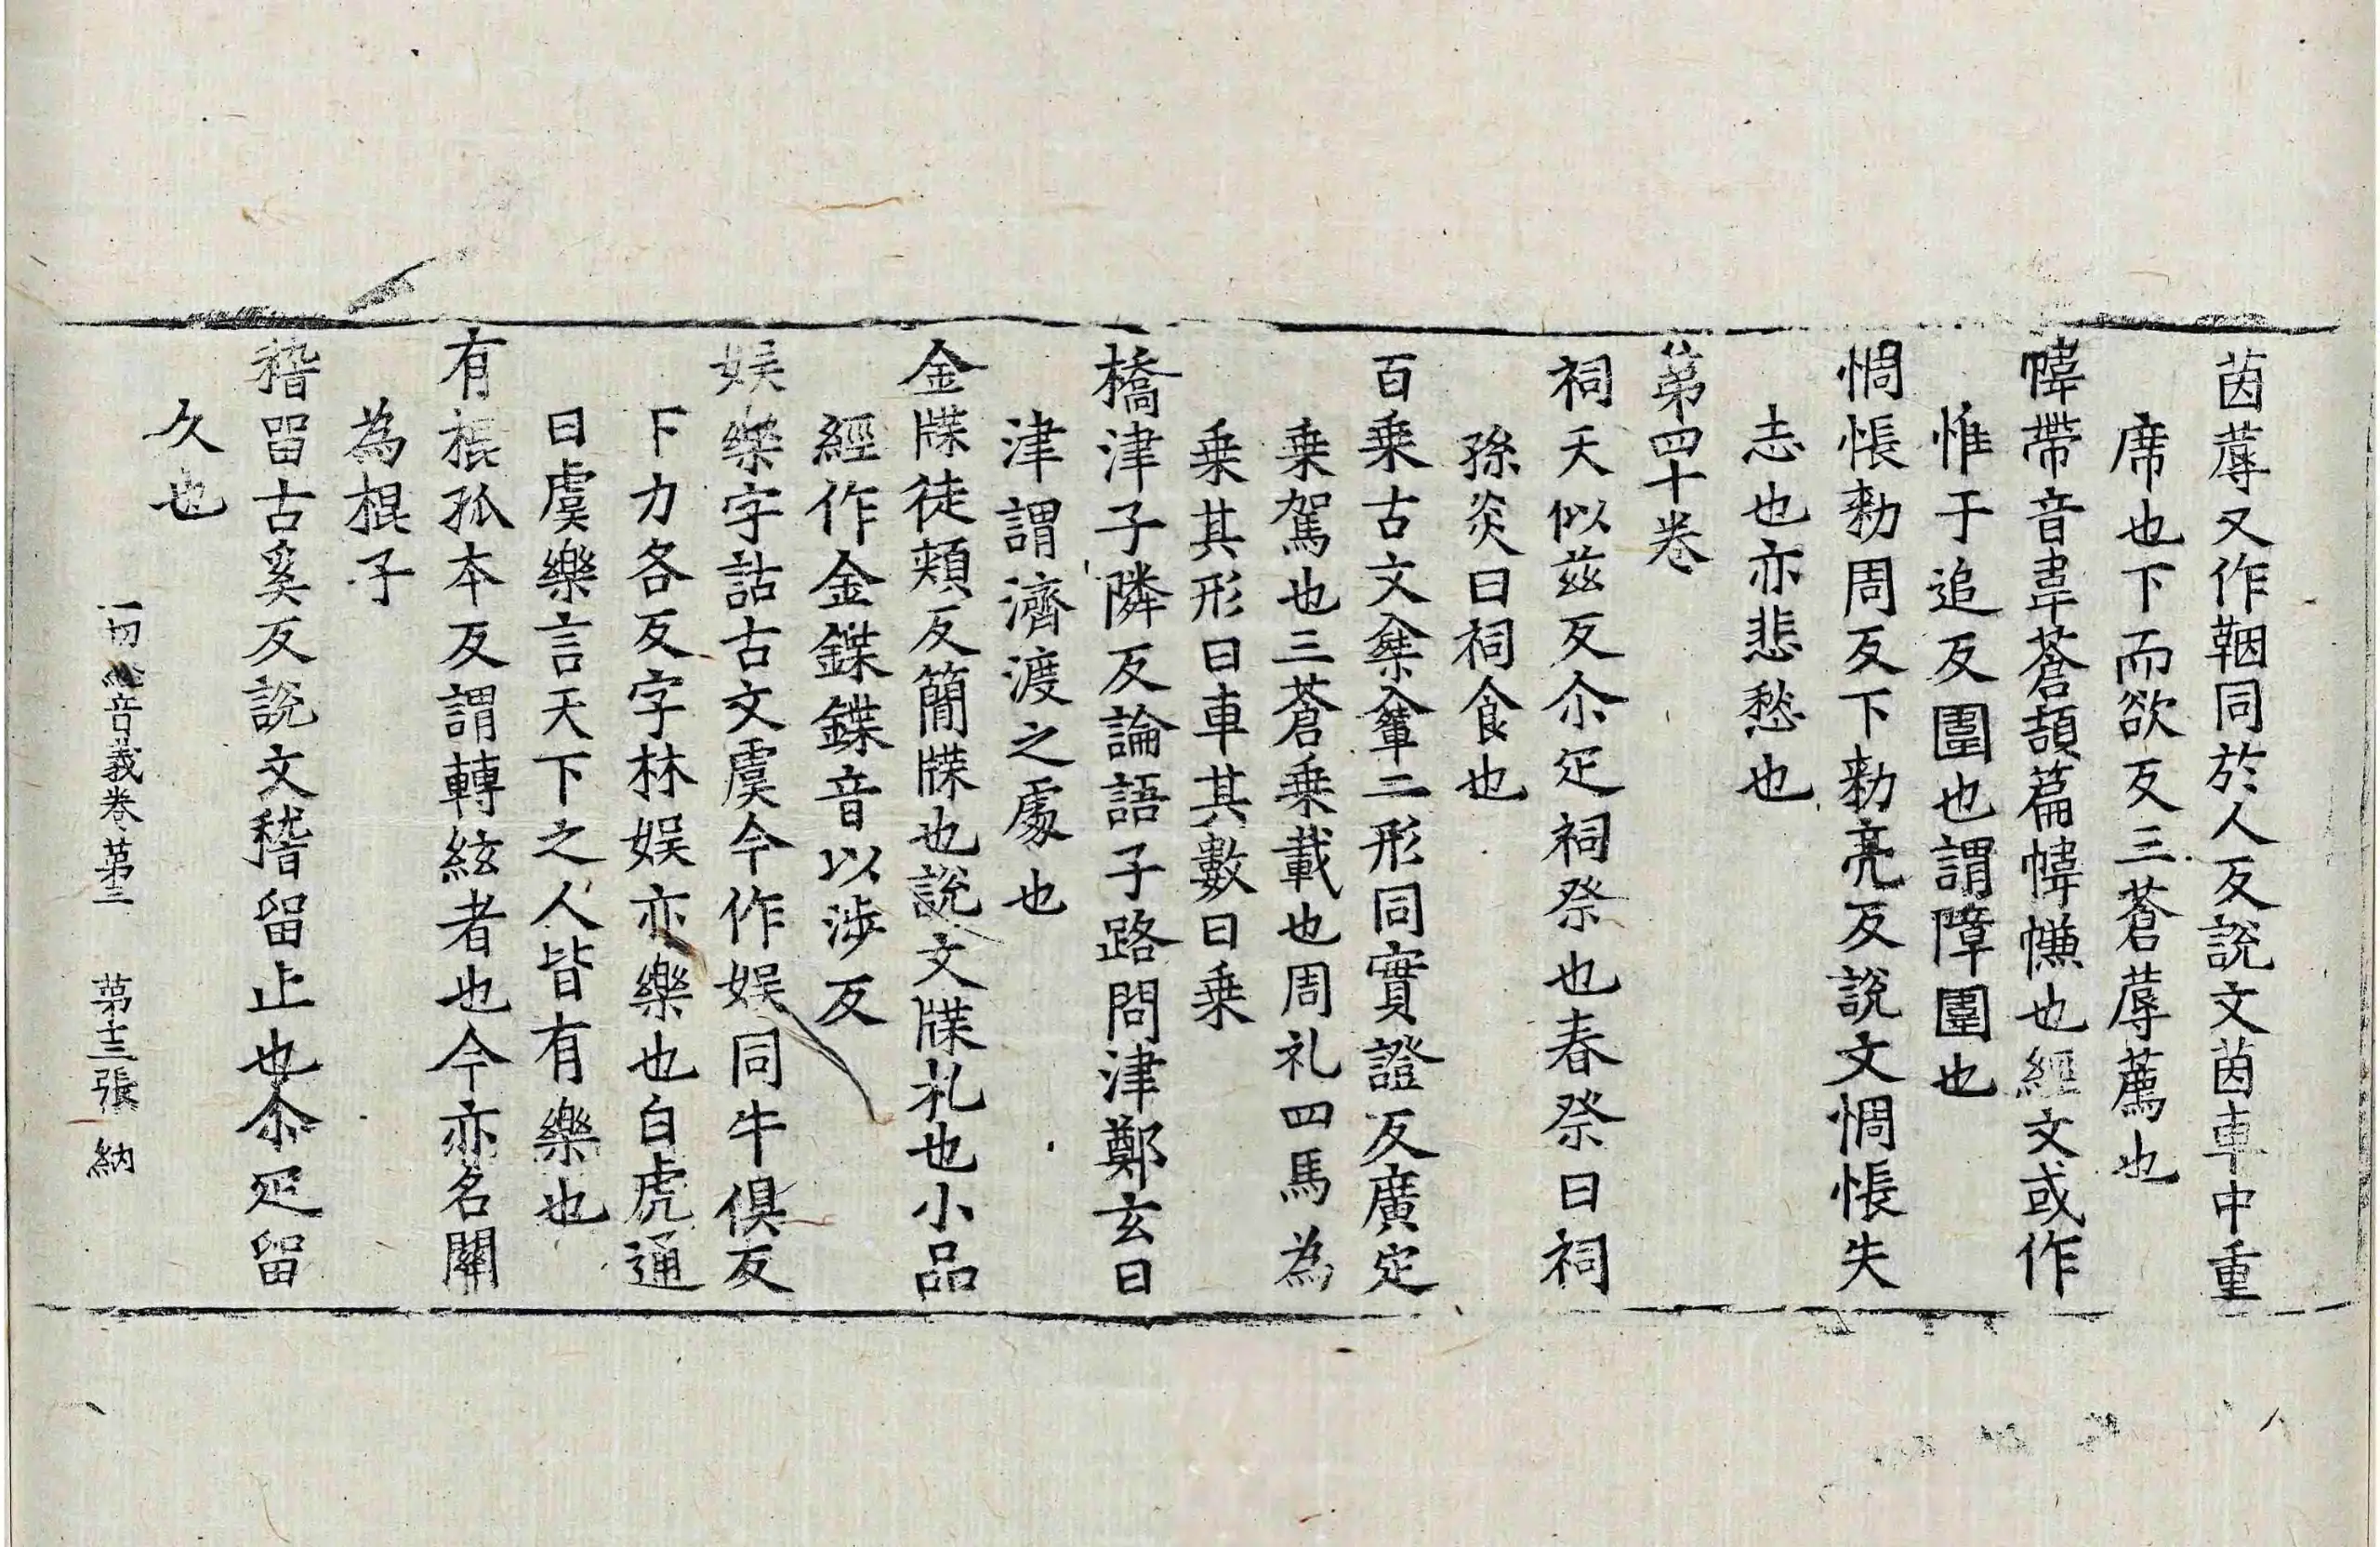 茵蓐又作鞇同於人反說文茵車中重
席也下而欲反三蒼蓐薦也
幃帶音韋蒼頡篇幃㡘也經文或作
惟于追反圍也謂障圍也
惆悵勑周反下勑亮反說文惆悵失
志也亦悲愁也
第四十卷
祠天似兹反尒疋祠祭也春祭曰祠
孫炎曰祠食也
百乗古文椉𨋎二形同實證反廣疋
乗駕也三蒼乗載也周礼四馬為
乗其形曰車其數曰乗
橋津子隣反論語子路問津鄭玄曰
津謂濟渡之處也
金牒徒頰反簡牒也說文牒札也小品
經作金鍱鍱音以涉反
娯樂字詁古文虞今作娯同牛俱反
下力各反字林娯亦樂也白虎通
曰虞樂言天下之人皆有樂也
有棍孤本反謂轉絃者也今亦名關
為棍子
稽留古奚反說文稽留止也尒疋留
久也
一切經音義卷第三 第十三張 納